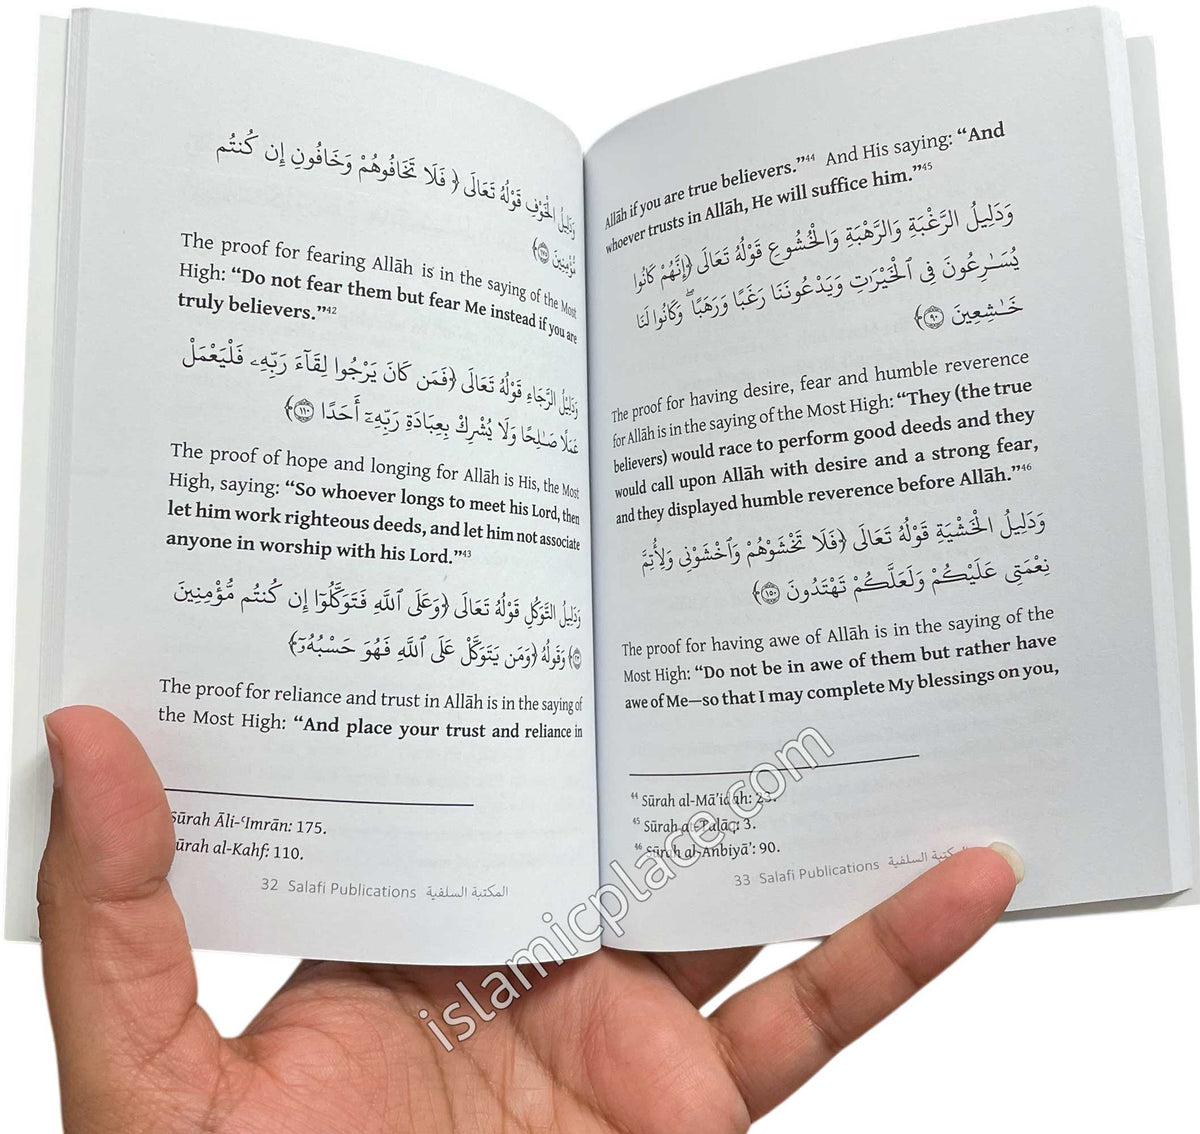 وَدَلِيلُ الْخَوْفِ قَوْلُهُ تَعَالَى ﴿ فَلَا تَخَافُوهُمْ وَخَافُونِ إِن كُنتُم
مُّؤْمِنِينَ ١٧٥ ﴾
The proof for fearing Allāh is in the saying of the Most
High: “Do not fear them but fear Me instead if you are
truly believers.”⁴²
وَدَلِيلُ الرَّجَاءِ قَوْلُهُ تَعَالَى ﴿فَمَن كَانَ يَرْجُوا لِقَآءَ رَبِّهِۦ فَلْيَعْمَلْ
عَمَلًا صَٰلِحًا وَلَا يُشْرِكْ بِعِبَادَةِ رَبِّهِۦٓ أَحَدًا ١١٠﴾
The proof of hope and longing for Allāh is His, the Most
High, saying: “So whoever longs to meet his Lord, then
let him work righteous deeds, and let him not associate
anyone in worship with his Lord.”⁴³
وَدَلِيلُ التَّوَكُّلِ قَوْلُهُ تَعَالَى ﴿وَعَلَى ٱللَّهِ فَتَوَكَّلُوٓا إِن كُنتُم مُّؤْمِنِينَ
٢٣﴾ وَقَوْلُهُ ﴿وَمَن يَتَوَكَّلْ عَلَى ٱللَّهِ فَهُوَ حَسْبُهُۥٓ﴾
The proof for reliance and trust in Allāh is in the saying of
the Most High: “And place your trust and reliance in
Sūrah Āli-ʿImrān: 175.
Sūrah al-Kahf: 110.
32 Salafi Publications المكتبة السلفية
Allāh if you are true believers.”⁴⁴ And His saying: “And
whoever trusts in Allāh, He will suffice him.”⁴⁵
وَدَلِيلُ الرَّغْبَةِ وَالرَّهْبَةِ وَالْخُشُوعِ قَوْلُهُ تَعَالَى ﴿إِنَّهُمْ كَانُوا
يُسَٰرِعُونَ فِى ٱلْخَيْرَٰتِ وَيَدْعُونَنَا رَغَبًا وَرَهَبًا ۖ وَكَانُوا لَنَا
خَٰشِعِينَ ٩٠﴾
The proof for having desire, fear and humble reverence
for Allāh is in the saying of the Most High: “They (the true
believers) would race to perform good deeds and they
would call upon Allāh with desire and a strong fear,
and they displayed humble reverence before Allāh.”⁴⁶
وَدَلِيلُ الْخَشْيَةِ قَوْلُهُ تَعَالَى ﴿فَلَا تَخْشَوْهُمْ وَٱخْشَوْنِى وَلِأُتِمَّ
نِعْمَتِى عَلَيْكُمْ وَلَعَلَّكُمْ تَهْتَدُونَ ١٥٠﴾
The proof for having awe of Allāh is in the saying of the
Most High: “Do not be in awe of them but rather have
awe of Me—so that I may complete My blessings on you,
⁴⁴ Sūrah al-Mā’idah: 23.
⁴⁵ Sūrah aṭ-Ṭalāq: 3.
⁴⁶ Sūrah al-Anbiyā’: 90.
33 Salafi Publications المكتبة السلفية
islamicplace.com